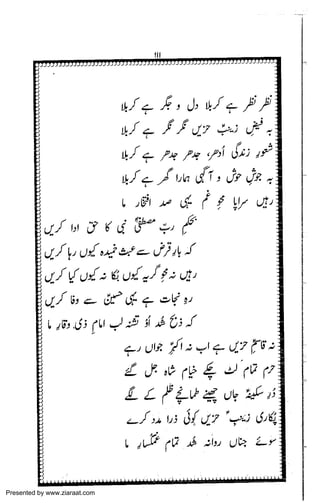 ۱۱۱
نظر نظر ہے کربلا دل و جگر ہے کربلا
بہ فیضِ زینبؑ حزیں نگر نگر ہے کربلا
شعورِ زندگی اُدھر، جدھر جدھر ہے کربلا
بہ جوشِ ہوش و آگہی ہمارا گھر ہے کربلا
رہیں سراپا محوِ غم یہی صد افتخارِ ما
بحکمِ ربِّ مصطفیٰؐ نبی کا حق ادا کریں
کہ بارِ قرض سے عبث خمیدہ کیوں رہا کریں
رہیں نہ محوِ گریہ کیوں بُکا نہ کیوں کیا کریں
رہِ نجات ہے یہی حسینؑ سے وفا کریں
کہ ذبح شُد اُو تشنہ لب امامِ ذی وقارِ ما
نہ قاسمِؑ حزیں ہے اب نہ اکبرِؑ جواں رہے
حرم تمام لٹ چکے خیامِ شاہ جل گئے
دُرِ سکینہؑ جاں چھنے طمانچے ظلم کے لگے
پُکاری زینبِؑ حزیں کوئی ذرا مدد کرے
سوئے جناں روانہ شُد تمام غمگسارِ ما
Presented by www.ziaraat.com